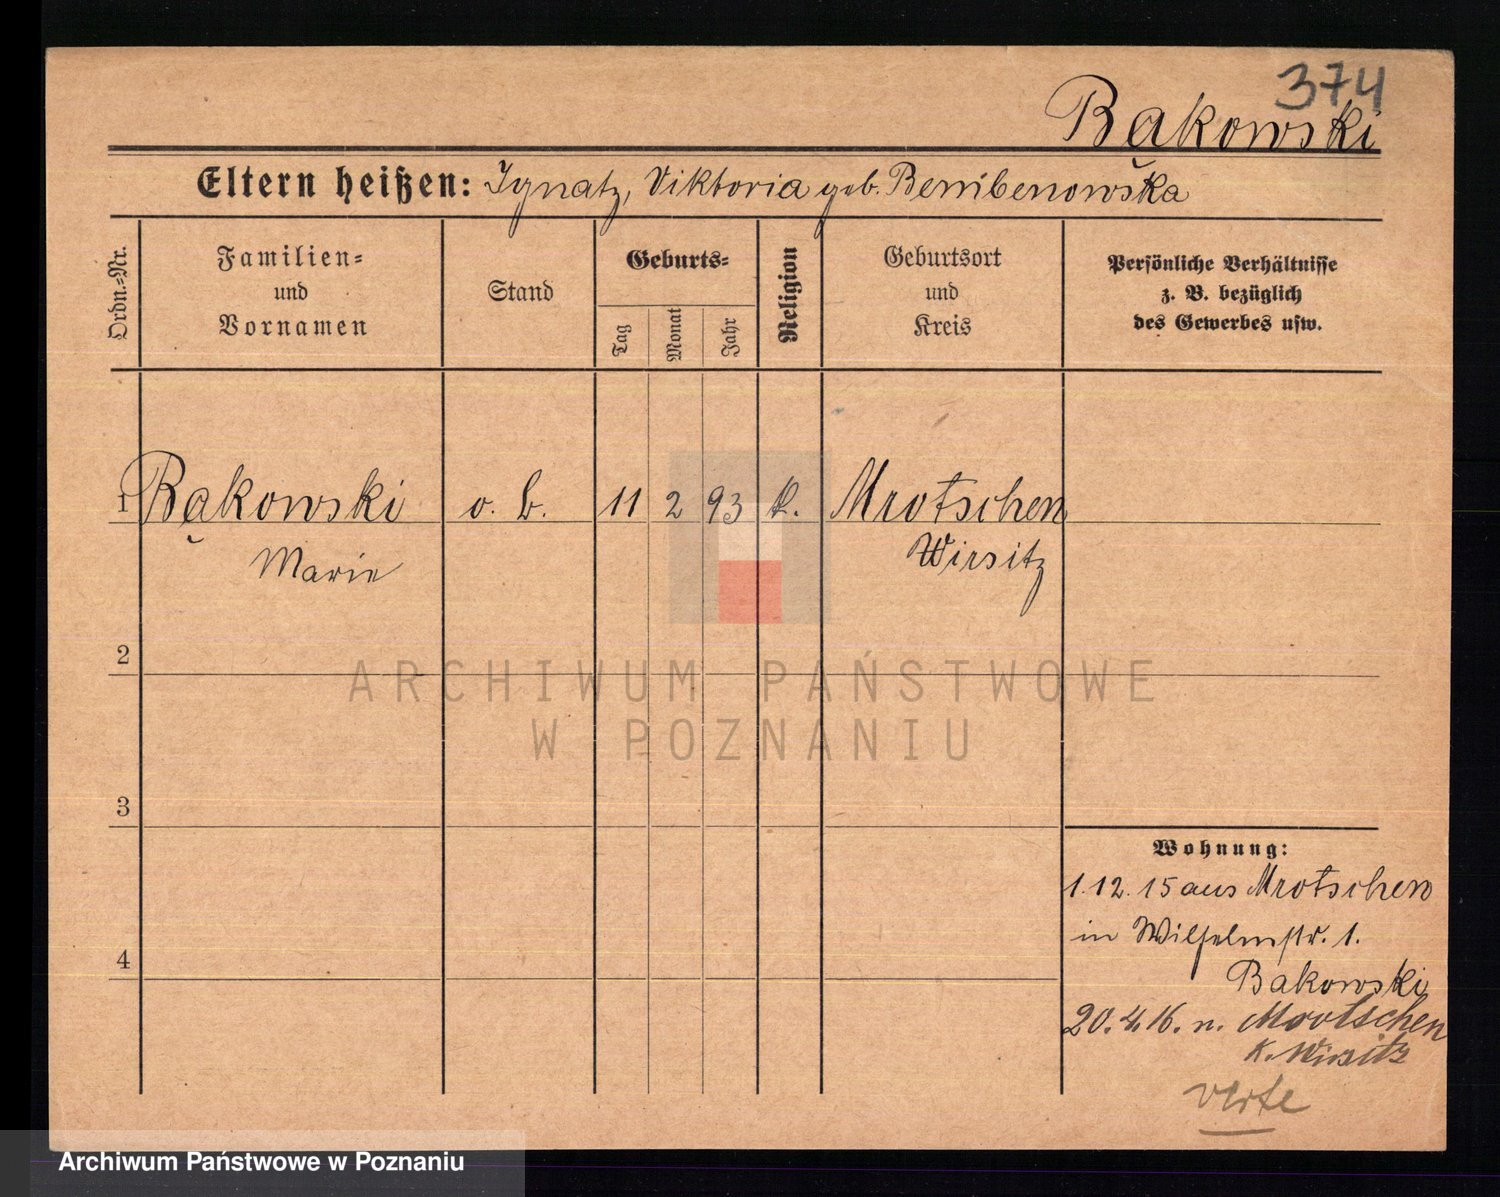 374
Bąkowski
Eltern heißen: Ignatz, Viktoria geb.
Ordn.-Nr.
Familien-
und
Vornamen
Stand
Geburts-
Tag
Monat
Jahr
Religion
Geburtsort
und
Kreis
Persönliche Verhältnisse
z. B. bezüglich
des Gewerbes usw.
1 Bąkowski o. b. 11 2 93 k. Mrotschen
Marie Wirsitz
2
ARCHIWUM PAŃSTWOWE
W POZNANIU
3
Wohnung:
1.12.15 aus Mrotschen
in Wilhelmstr. 1.
4
Bakowski
20.4.16. n. Mrotschen
K. Wirsitz
verte
Archiwum Państwowe w Poznaniu